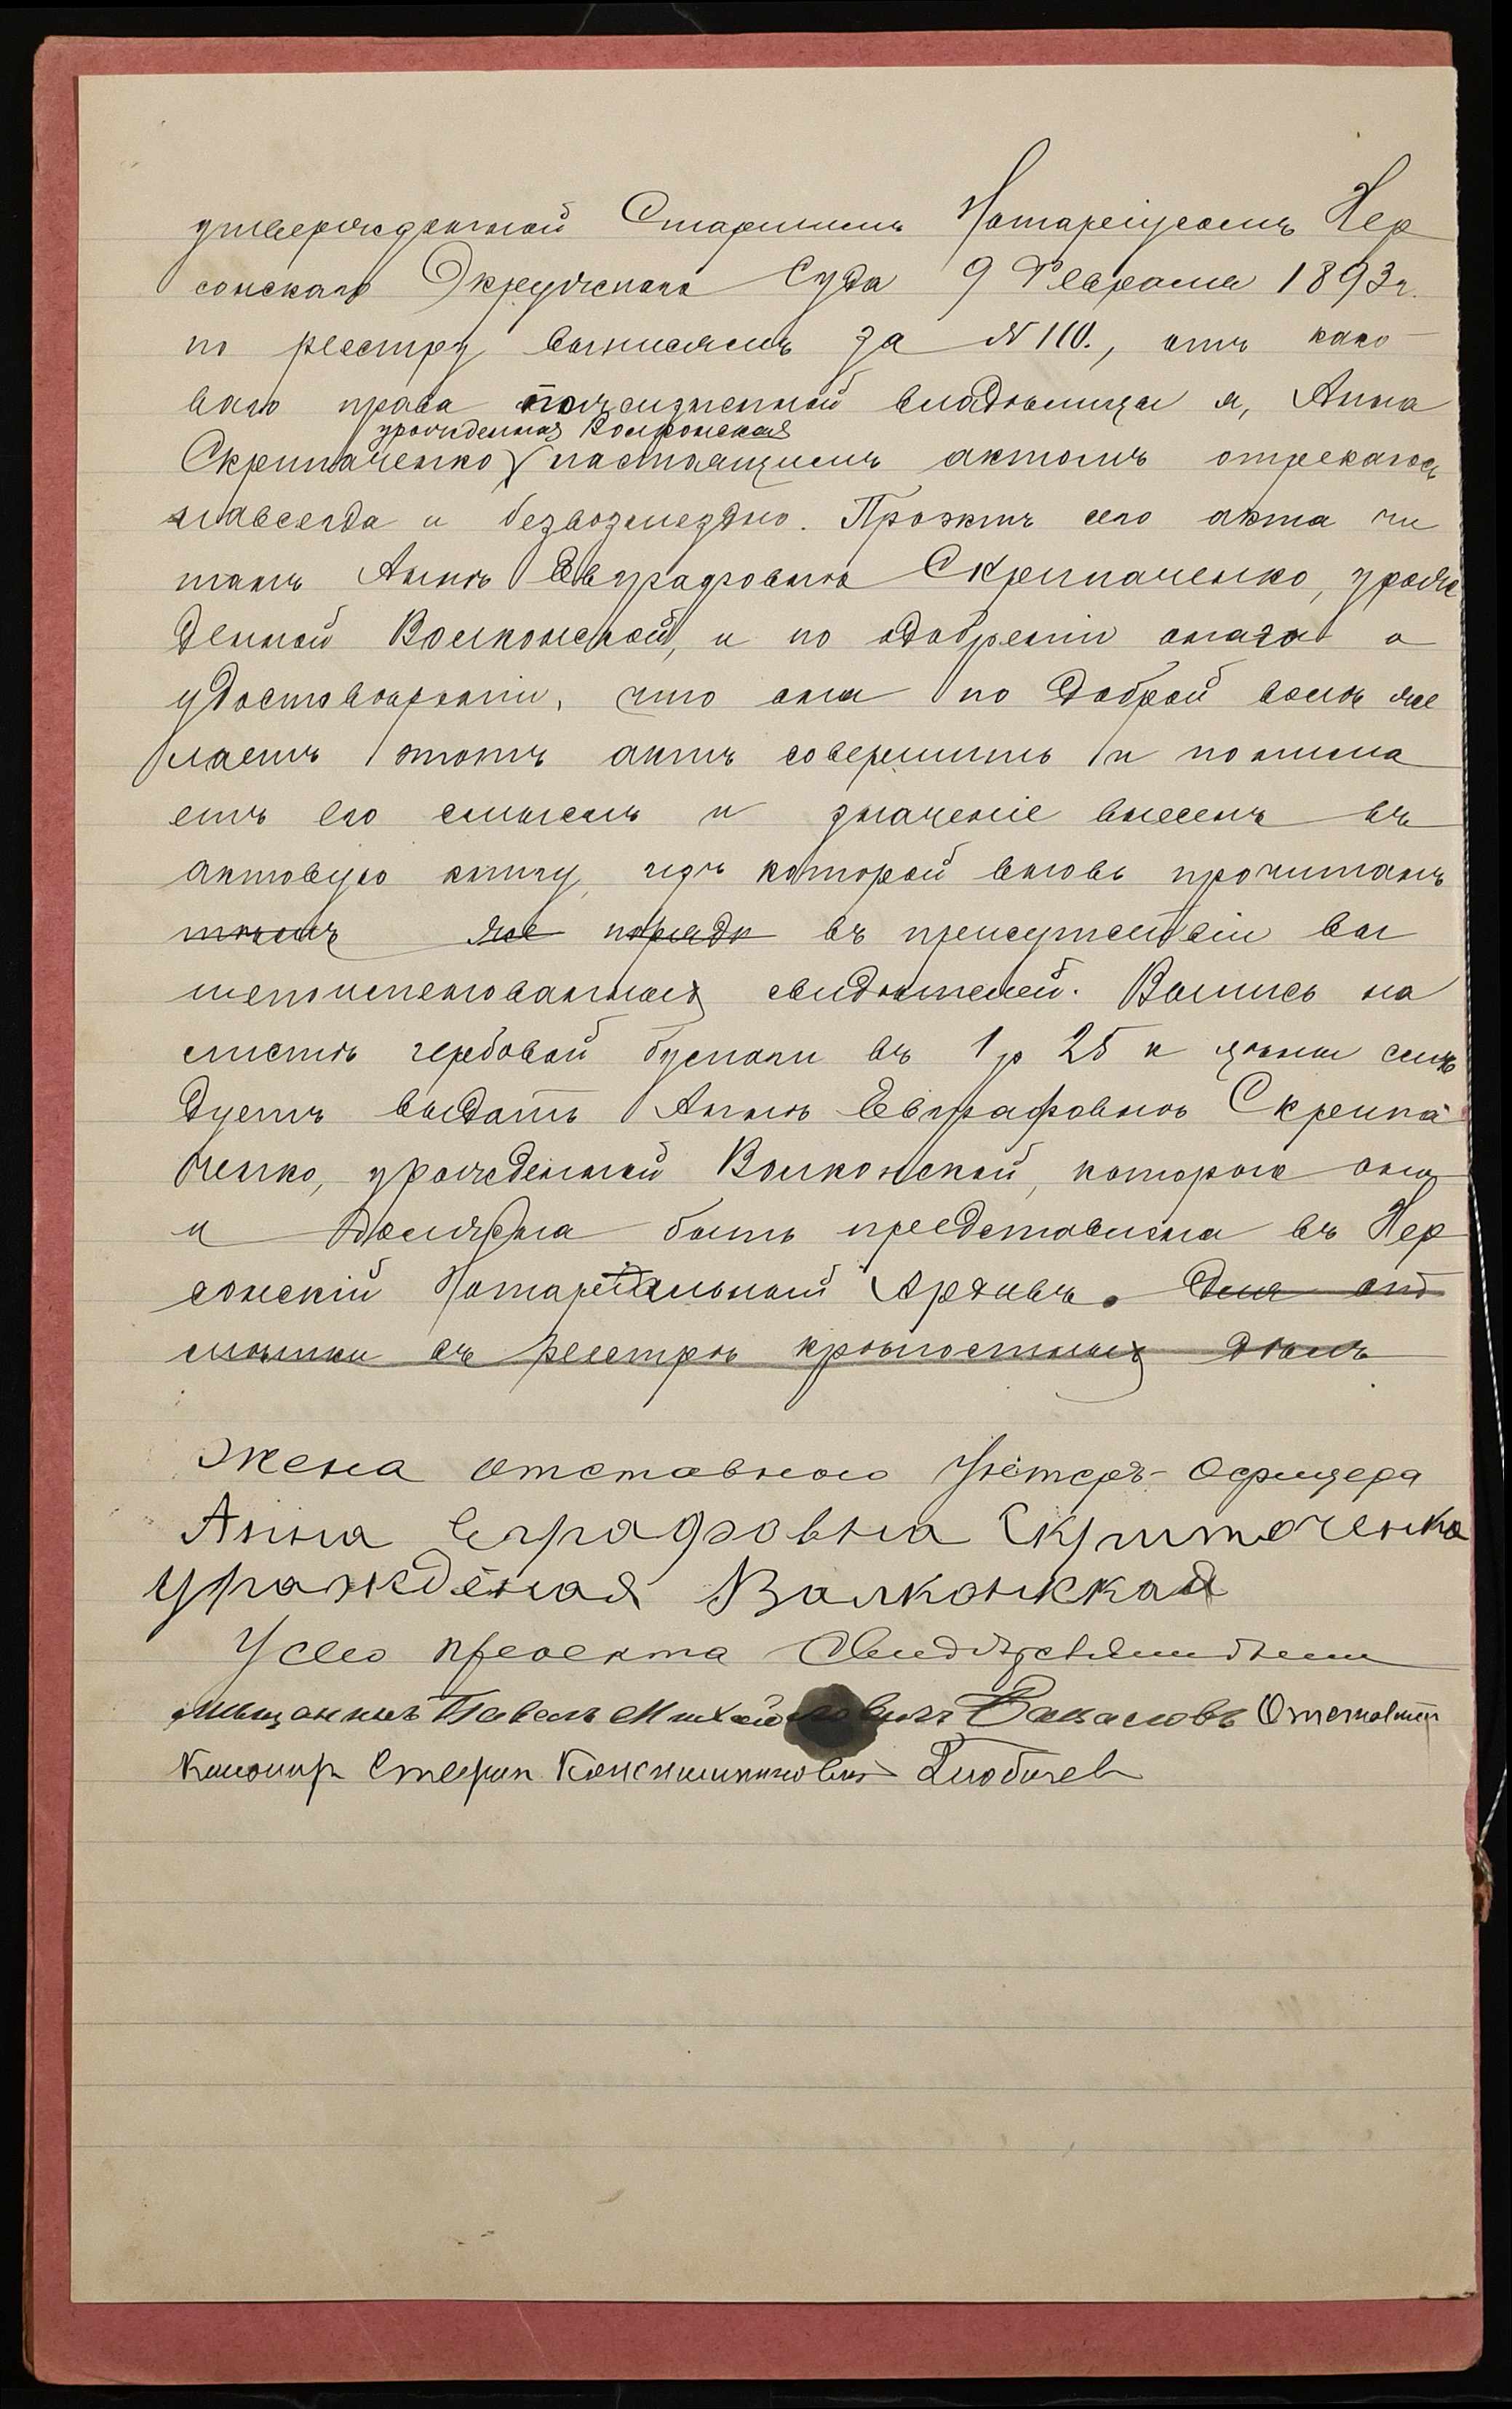 утвержденной Старшимъ Нотаріусомъ Хер
сонскаго Окружнаго Суда 9 Февраля 1893 г.
по реестру за № 110., отъ како
ваго права пожизненной владѣлицы я, Анна
урожденная Волконская
Скрипаченко настоящимъ актомъ отрекаюсь
навсегда и безвозмездно. Проэктъ сего акта чи
танъ Аннѣ Евграфовнѣ Скрипаченко, урож
денной Волконской, и по одобреніи онаго и
удостовѣреніи, что она по доброй волѣ же
лаетъ этотъ актъ совершить и понима
етъ его смыслъ и значеніе внесенъ въ
актовую книгу, изъ которой вновь прочитанъ
тѣмъ же порядк въ присутствіи вы
шепоименованныхъ свидѣтелей. Выпись на
листѣ гербовой бумаги въ 1 р 25 к цѣны слѣ
дуетъ выдать Аннѣ Евграфовнѣ Скрипа
ченко, урожденной Волконской, которая она
и должна быть представлена въ Хер
сонскій Нотаріальный Архивъ. Для от
мѣтки въ реестрѣ крѣпостныхъ дѣлъ
Жена отставного Унтеръ-Офицера
Анна Еграфовна Скрипоченко
Урождёная Валконская
У сего проекта
мѣщанинъ Павелъ Михайловичъ Отставной
Степан Константинович